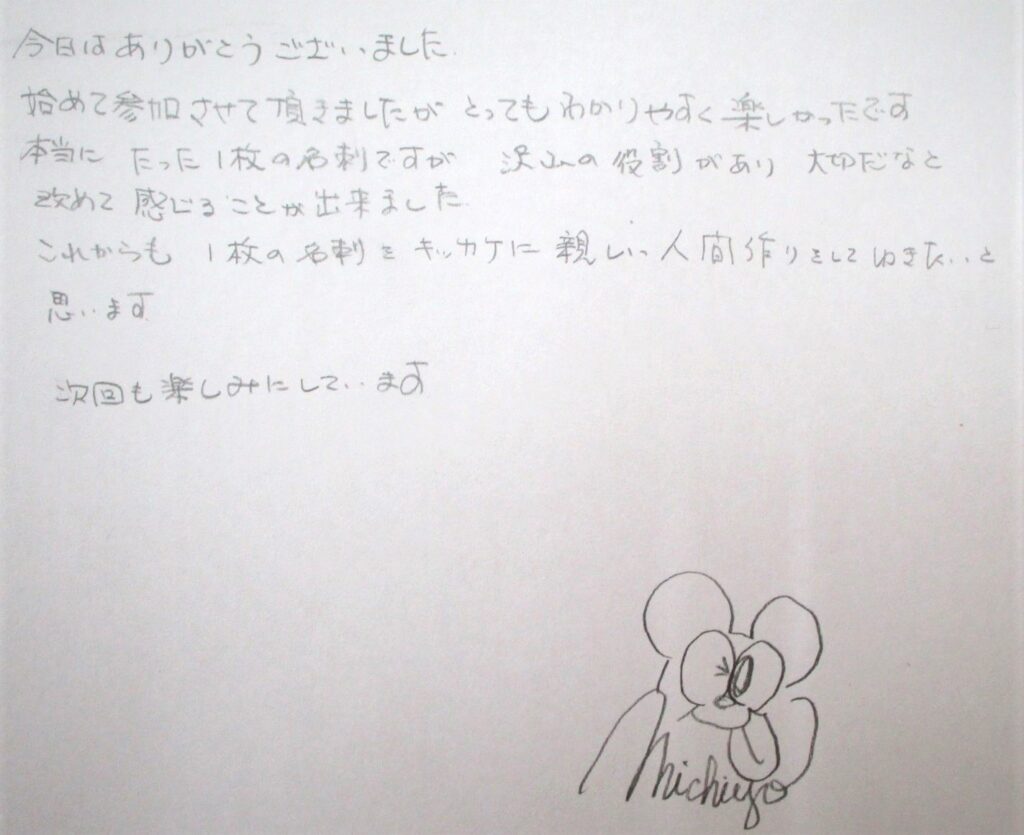 今日はありがとうございました.
始めて参加させて頂きましたが とってもわかりやすく楽しかったです
本当に たった1枚の名刺ですが 沢山の役割があり 大切だなと
改めて 感じることが出来ました.
これからも 1枚の名刺をキッカケに 親しい人間作りをしていきたいと
思います
次回も楽しみにしています
Michiyo